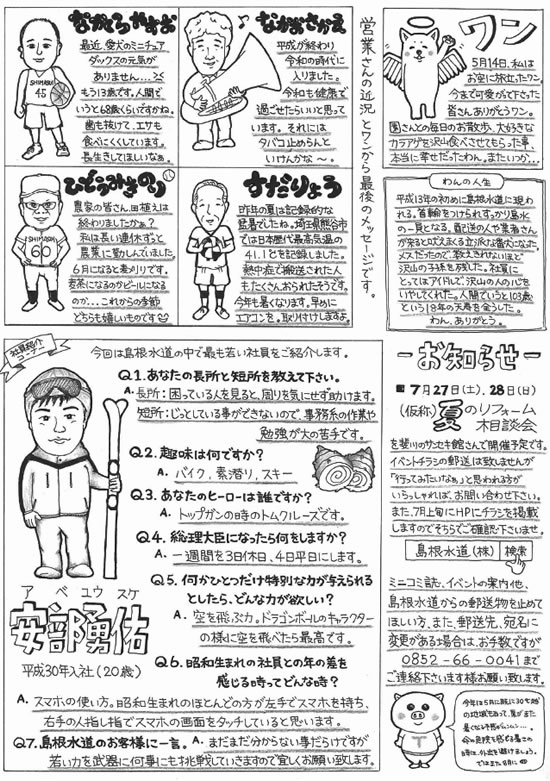 営業さんの近況とワンから最後のメッセージです。
なかとうやすお
最近、愛犬のミニチュア
ダックスの元気が
ありません…
もう13歳です。人間で
いうと68歳くらいですかね。
歯も抜けて、エサも
食べにくくしています。
長生きしてほしいなぁ。
SHIMASUI
45
なかおさかえ
平成が終わり
令和の時代に
入りました。
令和も健康で
過ごせたらいいと思って
います。それには
タバコ止めらんと
いけんかな〜。
ひとうみきのり
農家の皆さん、田植えは
終わりましたかぁ?
私は長い連休ずっと
農業に勤しんでいました。
6月になると麦刈りです。
麦茶になるのかビールになる
のか…これからの季節
どちらも嬉しいものです
SHIMASUI
66
すだりょう
昨年の夏は記録的な
猛暑でしたね。埼玉県熊谷市
では日本歴代最高気温の
41.1℃を記録しました。
熱中症で搬送された人
もたくさんおられたそうです。
今年も暑くなります。早めに
エアコンを。取り付けしますよ。
ワン
5月14日、私は
お空に旅立ったワン。
今まで可愛がって下さった
皆さん、ありがとうワン。
園さんとの毎日のお散歩、大好きな
カラアゲを沢山食べさせてもらった事、
本当に幸せだったわん。またいつか…
わんの人生
平成13年の初めに島根水道に現わ
れる。首輪をつけられすっかり島水
の一員となる。配送の人や業者さん
が来ると吠えまくる立派な番犬になった。
メスだったので、数えきれないほど
沢山の子孫を残した。社員に
とってはアイドルで、沢山の人の心を
いやしてくれた。人間でいうと103歳
という18年の天寿を全うした。
わん、ありがとう。
社員紹介
コーナー
今回は島根水道の中で最も若い社員をご紹介します。
Q1.あなたの長所と短所を教えて下さい。
A.長所:困っている人を見ると、周りを気にせず助けます。
短所:じっとしている事ができないので、事務系の作業や
勉強が大の苦手です。
Q2.趣味は何ですか?
A.バイク、素潜り、スキー
Q3.あなたのヒーローは誰ですか?
A.トップガンの時のトムクルーズです。
Q4.総理大臣になったら何をしますか?
A.一週間を3日休日、4日平日にします。
Q5.何かひとつだけ特別な力が与えられる
としたら、どんな力が欲しい?
A.空を飛ぶ力。ドラゴンボールのキャラクター
の様に空を飛べたら最高です。
Q6.昭和生まれの社員との年の差を
感じる時ってどんな時?
A.スマホの使い方。昭和生まれのほとんどの方が左手でスマホを持ち、
右手の人指し指でスマホの画面をタッチしていると思います。
Q7.島根水道のお客様に一言。A.まだまだ分からない事だらけですが
若い力を武器に何事にも挑戦していきますので宜しくお願い致します。
アベ ユウスケ
安部勇佑
平成30年入社(20歳)
ーお知らせー
7月27日(土)、28日(日)
(仮称)夏のリフォーム
相談会
を斐川のサンセキ館さんで開催予定です。
イベントチラシの郵送は致しませんが
「行ってみたいなぁ」と思われる方が
いらっしゃれば、お問い合わせ下さい。
また、7月上旬にHPにチラシを掲載
しますのでそちらでご確認下さいませ。
島根水道(株) 検索
ミニコミ誌、イベントの案内他、
島根水道からの郵送物を止めて
ほしい方、また、郵送先、宛名に
変更がある場合は、お手数ですが
0852-66-0041まで
ご連絡下さいます様お願い致します。